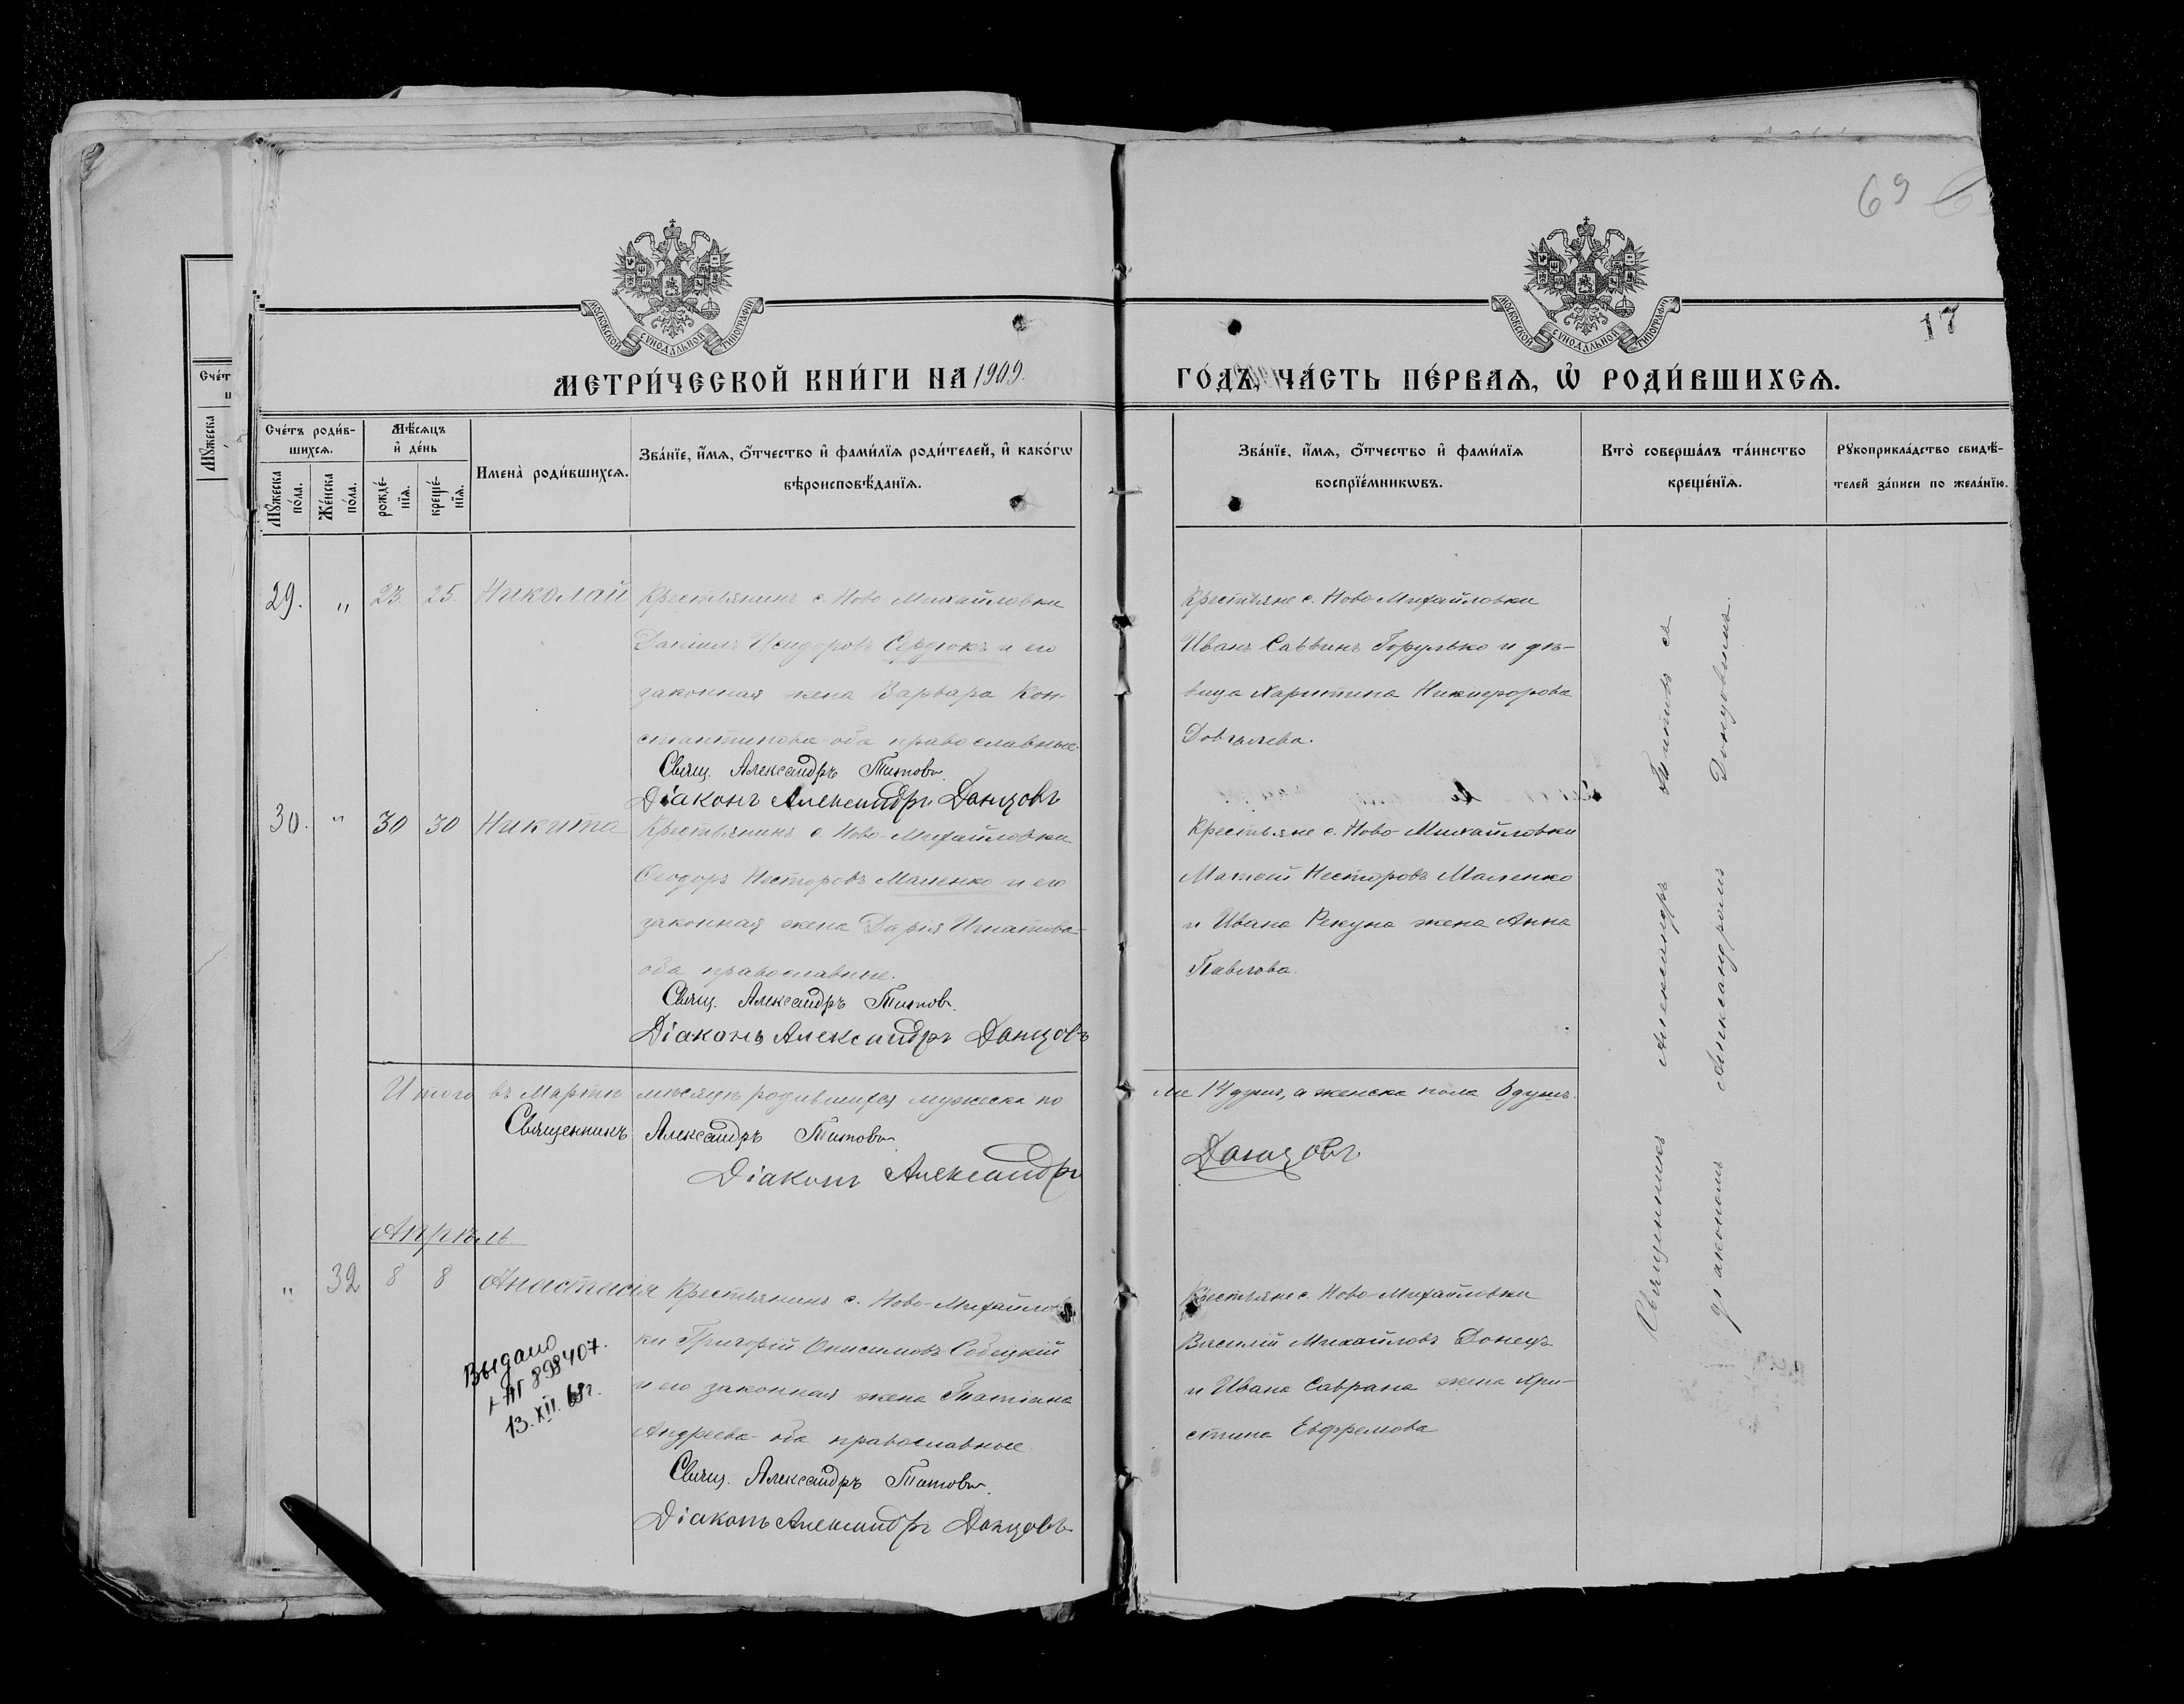 69
17
МОСКОВСКОЙ СѴНОДАЛЬНОЙ ТИПОГРАФІИ
МОСКОВСКОЙ СѴНОДАЛЬНОЙ ТИПОГРАФІИ
МЕТРИ́ЧЕСКОЙ КНИ́ГИ НА 1909.
ГО́ДЪ, ЧА́СТЬ ПЕ́РВАЯ, Ѽ РОДИ́ВШИХСЯ.
Сче́т
Мꙋжеска
Сче́тъ роди́в-
шихся.
Мꙋжеска по́ла.
Же́нска по́ла.
Мѣ́сяцъ
и҆ де́нь
рожде́-
нїя.
креще́-
нїя.
Имена̀ роди́вшихся.
Зва́нїе, и҆́мя, ѻ҆́тчество и҆ фами́лїя роди́телей, и҆ како́гѡ
вѣроисповѣ́данїя.
Зва́нїе, и҆́мя, ѻ҆́тчество и҆ фами́лїя
воспрїе́мникѡвъ.
Кто̀ соверша́лъ та́инство
креще́нїя.
Рꙋкоприкла́дство свидѣ́-
телей за́писи по жела́нїю.
29. " 23. 25. Николай
Крестьянинъ с. Ново Михайловки
Даніилъ Исидоровъ Сердюкъ и его
законная жена Варвара Кон-
стантинова оба православные.
Свящ. Александръ Титовъ.
Діаконъ Александръ Донцовъ
Крестьяне с. Ново Михайловки
Иванъ Саввинъ Горулько и дѣ-
вица Харитина Никифорова
Довгалева.
30. " 30 30 Никита
Крестьянинъ с. Ново-Михайловки
Ѳеодоръ Несторовъ Маленко и его
законная жена Дарія Игнатова
оба православные.
Свящ. Александръ Титовъ.
Діаконъ Александръ Донцовъ
Крестьяне с. Ново-Михайловки
Матѳей Несторовъ Маленко
и Ивана Рекуна жена Анна
Павлова.
Итого въ Мартѣ мѣсяцѣ родившихся мужеска по
ла 14 душъ, а женска пола 6 душъ.
Священникъ Александръ Титовъ
Діаконъ Александръ
Донцовъ
Апрѣль
" 32 8 8 Анастасія
Крестьянинъ с. Ново-Михайлов
ки Григорій Онисимовъ Собецкій
и его законная жена Татіана
Андреева оба православные
Свящ. Александръ Титовъ.
Діаконъ Александръ Донцовъ
Выдано
898407.
13. XII. 68г.
Крестьяне с. Ново-Михайловки
Василій Михайловъ Донецъ
и Ивана Саврана жена Хри-
стина Евфремова
Священникъ Александръ Титовъ съ
діакономъ Александромъ Донцовымъ.